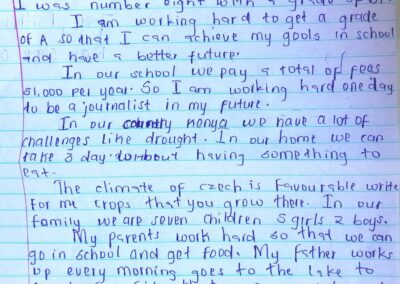 I was number eight with a grade of
I am working hard to get a grade
of A so that I can achieve my goals in school
and have a better future.
In our school we pay a total of fees
$1,000 per year. So I am working hard one day
to be a journalist in my future.
In our country kenya we have a lot of
challenges like drought. In our home we can
take 3 day. without having something to
eat.
The climate of czech is favourable write
for me crops that you grow there. In our
family we are seven children 5 girls 2 boys.
My parents work hard so that we can
go in school and get food. My father works
up every morning goes to the lake to